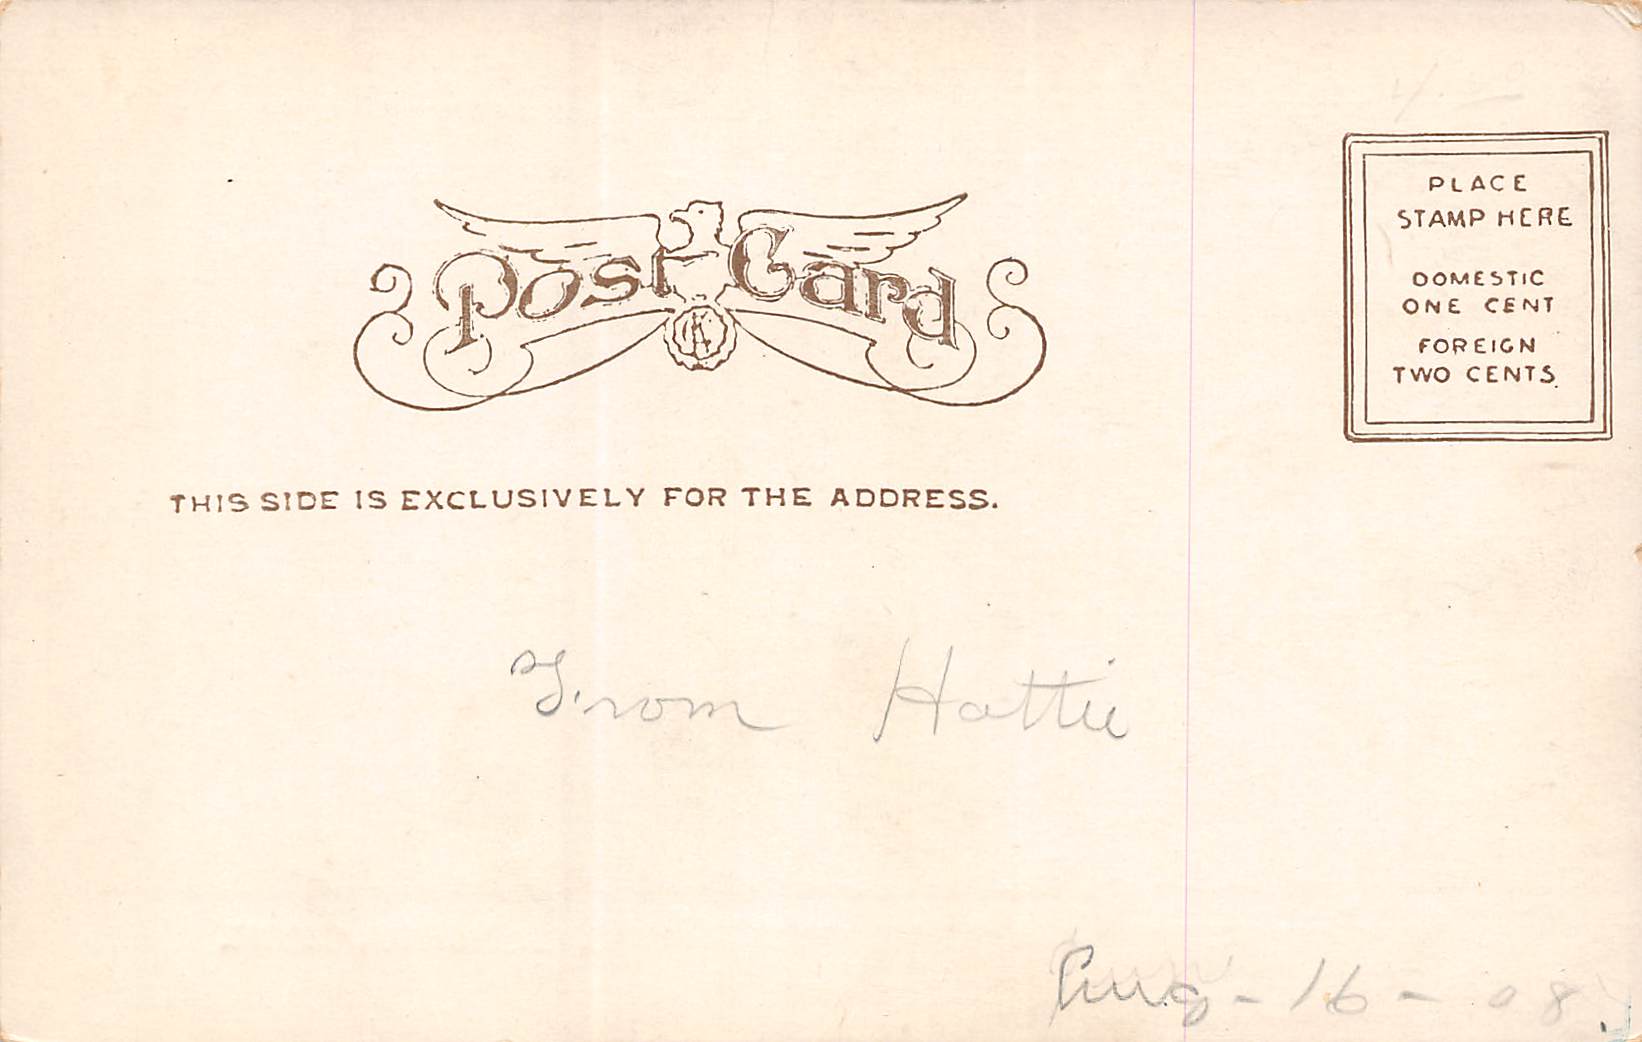 PLACE
STAMP HERE
DOMESTIC
ONE CENT
FOREIGN
TWO CENTS.
Post Card
THIS SIDE IS EXCLUSIVELY FOR THE ADDRESS.
From Hattie
Aug - 16 - 08